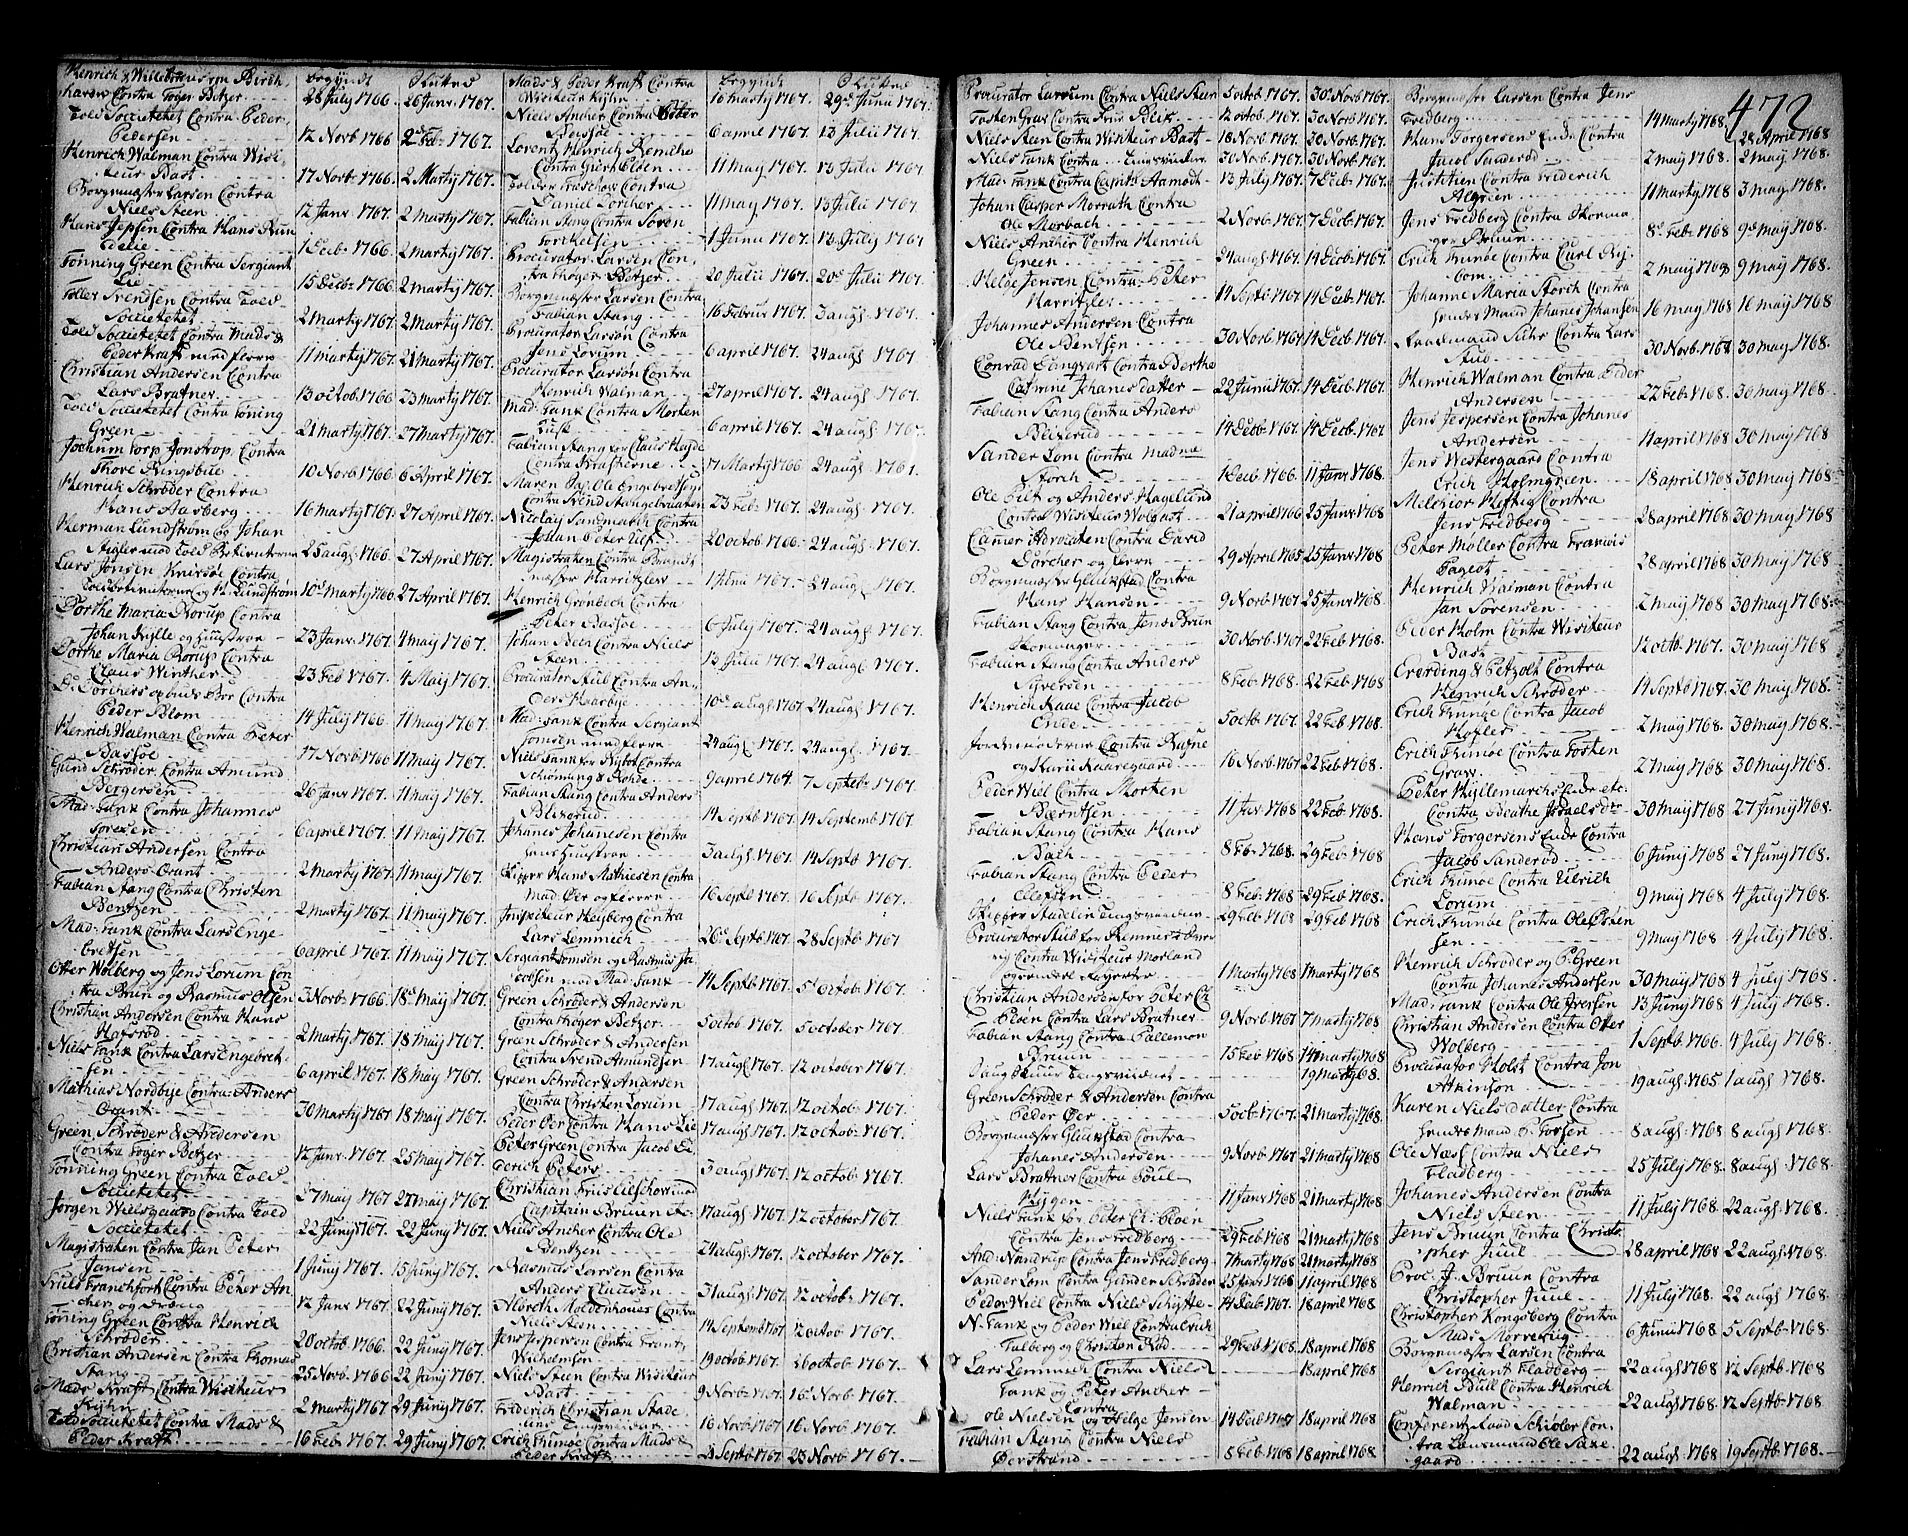 472
Begyndt Slutted
Henrich & Willebrandsen Birch
haven Contra Toger Betzer 28 July 1766. 26 Janr. 1767.
Told Societetet Contra Peder
Pedersen 12 Novb 1766 2 Feb. 1767.
Henrich Walman Contra Visi-
teur Bast 17 Novb. 1766. 2 Marty 1767.
Borgemester Larsen Contra
Niels Steen 12 Janr. 1767. 2 marty 1767.
Hans Jepsen Contra Hans Brun
1 Decb. 1766 2 marty 1767.
Tønning Green Contra Sergiant
Lie 15 Decb. 1766 2 marty 1767.
Toller Svendsen Contra Told
Societetet 2 marty 1767. 2 marty 1767.
Told Societetet Contra Mads &
Peder Kraft med flere 11 marty 1767. 21 marty 1767.
Christian Andersen Contra
Lars Bratner 13 octob. 1766 23 marty 1767.
Told Societetet Contra Tøning
Green 21 marty 1767. 27 marty 1767.
Jochum Torp Jonstrop Contra
Thore Ringsbue 10 Novb 1766. 6 April 1767.
Henrich Schrøder Contra
Hans Aasberg 16 marty 1767. 27 April 1767.
Herman Lundstrøm og Johan
Told Betienterne 25 augs. 1766. 27 April 1767.
Lars Jonsen Contra
Toldbetienterne og H. Lundstrøm 10 marty 1766 27 April 1767.
Dorthe Maria Rorup Contra
Johan Kylle og Huustrue 23 Janr. 1767. 4 may 1767.
Dorthe Maria Rorup Contra
Claus Winther 23 Feb 1767. 4 May 1767.
Contra
Peder Blom 14 July 1766 11 may 1767.
Henrich Walman Contra Peter
Bassøe 17 Novb 1766 11 may 1767.
Schrøder Contra Amund
Bergersen 26 Janr 1767. 11 may 1767.
Mad: Tank Contra Johannes
Sørensen 6 april 1767. 11 may 1767.
Christian Andersen Contra
Anders Grant 2 marty 1767. 11 may 1767.
Fabian Stang Contra Christen
Bentzen 2 marty 1767. 11 may 1767.
Mad: Tank Contra Lars Enge-
bretsen 6 april 1767. 11 may 1767.
Otter Wolberg og Jens Lorum Con
tra Brun og Rasmus Olsen 3 Novb. 1766. 18 may 1767.
Christian Andersen Contra Hans
Hafsrød 2 marty 1767. 18 may 1767.
Niels Tank Contra Lars Engebret-
sen 6 april 1767. 18 may 1767.
Mathias Nordbye Contra Anders
Grant 30 marty 1767 18 may 1767.
Green Schrøder & Andersen
Contra Toger Betzer 12 Janr. 1767. 25 may 1767.
Tønning Green Contra Told-
Societetet 27 may 1767. 27 may 1767.
Jørgen Wielsgaard Contra Told
Societetet 22 Juny 1767. 22 Juny 1767.
Magistraten Contra Jan Peter
Jansen 1 Juny 1767. 15 Juny 1767.
Truls Franchfort Contra Peter An
cher og Dræng 12 Janr 1767. 22 Juny 1767.
Tøning Green Contra Henrich
Schrøder 20 octob 1766 22 Juny 1767.
Christian Andersen Contra Thomas
Stang 25 Novb 1766. 22 Juny 1767.
Mads Kraft Contra Visiteur
Kyhn 2 marty 1767. 29 Juny 1767.
Toldsocietetet Contra Mads &
Peder Kraft 16 Feb. 1767. 29 Juny 1767.
Begyndt Slutted
Mads & Peder Kraft Contra
Visiteur Kyhn 16 marty 1767. 29 Junii 1767.
Niels Ancher Contra Peter
Bassøe 6 april 1767. 13 Julii 1767.
Lorent Henrich Remche
Contra Giert Olsen 11 may 1767. 13 Julii 1767.
Contra
Daniel Dørcher 11 may 1767. 13 Julii 1767.
Fabian Stang Contra Søren
Torkelsen 1 Junii 1767. 13 July 1767
Procurator Larsen Con-
tra Thøger Betzer 20 Julii 1767. 20 Julii 1767.
Borgemester Larsen Contra
Fabian Stang 16 Februr 1767. 3 augs. 1767.
Procurator Larsøn Contra
Jens Lorum 6 april 1767. 24 augs. 1767.
Procurator Larsøn Contra
Henrich Walman 27 april 1767. 24 augs. 1767.
Mad: Tank Contra Morten
Lusk 6 april 1767. 24 augs. 1767.
Fabian Stang for Claus Hajde
Contra Krafterne 17 Marty 1766 24 augs. 1767.
Maren Kylle Engebretsen
Contra Svend Stangebraaten 23 Feb. 1767. 24 augs. 1767.
Nicolay Sandmarch Contra
Johan Peter Ulf 20 octob. 1766. 24 augs. 1767.
Magistraten Contra Brand
mester Harritzlev 1 Junii 1767. 24 augs. 1767.
Henrich Grønbech Contra
Peter Bassøe 6 July 1767. 24 augs. 1767.
Johan Contra Niels
Steen 13 Julii 1767. 24 augs. 1767.
Procurator Stub Contra An-
ders Haarbye 10 augs 1767 24 augs. 1767.
Mad: Tank Contra Sergiant
Tomsen med flere 24 augs. 1767. 24 augs. 1767.
Niels Tank for Nybot Contra
Schiønning & Rohde 9 april 1764. 7 septb. 1767.
Fabian Stang Contra Anders
Blixerud 14 Septb 1767. 14 Septemb 1767.
Johanes Johanesen Contra
hans Huustrue 3 augs 1767. 14 Septb 1767.
Skipper Hans Mathiesen Contra
Mad Ore og flere 16 septb 1767. 16 Septb 1767.
Inspecteur Heyberg Contra
Lars Lemmich 26 septb 1767. 28 Septb 1767.
Sergiant Tomsen og Rasmus Ja-
cobsen mod Mad: Tank 14 Septb 1767. 5 octob. 1767.
Green Schrøder & Andersen
Contra Thøger Betzer 5 octob 1767. 5 october 1767.
Green Schrøder & Andersen
Contra Svend Amundsen 17 augs 1767. 12 october 1767.
Green Schrøder & Andersen
Contra Christen Lorum 17 augs 1767. 12 octob. 1767.
Peder Øer Contra Hans Lie 17 augs. 1767. 12 octob. 1767.
Peter Green Contra Jacob Di-
derich Peters 3 augs 1767. 12 octob. 1767.
Christian Friis
Capitain Bruun &c. 17 augs 1767. 12 october 1767.
Niels Ancher Contra Ole
Bentzen 24 augs 1767. 12 october 1767.
Rasmus Larsen Contra
Anders Clausen 31 augs 1767. 12 octob. 1767.
Moldenhouer Contra
Niels Steen 14 Septemb 1767. 12 octob 1767.
Jens Jespersen Contra Frantz
Wilhelmsen 19 octob. 1767. 26 octob. 1767.
Niels Steen Contra Visiteur
Bast 9 Novb. 1767. 16 Novb. 1767.
Friderich Christian Stade
16 Novb 1767 16 Novb. 1767.
Erich Thunøe Contra Mads &
Peder Kraft 28 Septb. 1767. 23 Novb. 1767.
Procurator Larsum Contra Niels Steen 5 octob. 1767. 30 Novb. 1767.
Tosten Grav Contra Friis Blix 12 octob. 1767. 30 Novb. 1767.
Niels Steen Contra Visiteur Bast 18 Novb. 1767. 30 Novb. 1767.
Niels Tank Contra 30 Novb. 1767. 30 Novb. 1767.
Mad: Tank Contra Capit: Aamodt 13 July 1767. 7 Decb. 1767.
Johan Casper Morrath Contra
Ole Morbach 2 Novb. 1767. 7 Decb. 1767.
Niels Ancher Contra Henrich
Green 24 augs. 1767. 14 Decb. 1767.
Helge Jensen Contra Peter
Harritzlev 14 Septb 1767. 14 Decb. 1767.
Johannes Andersen Contra
Ole Bentsen 30 Novb. 1767. 14 Decb. 1767.
Conrad Contra Berthe
Catrine Johanesdatter 22 Junii 1767. 14 Decb. 1767.
Fabian Stang Contra Anders
Blixrud 14 Decb. 1767. 14 Decb. 1767.
Sander Lom Contra Madme
Storch 1 Decb 1766. 11 Janr 1768.
Ole Pilt og Anders Hagelund
Contra Visiteur Wolgast 21 april 1766 25 Janr 1768
Camer Advocaten Contra David
Dørcher og flere 29 April 1765 25 Janr 1768
Borgemester Gluckstad Contra
Hans Hansen 9 Novb 1767. 25 Janr 1768.
Fabian Stang Contra Jens Bruun
30 Novb 1767 22 Feb 1768.
Fabian Stang Contra Anders
Syversen 8 Feb. 1768. 22 Feb 1768
Henrich Raae Contra Jacob
Ende 5 octb. 1767. 22 Feb 1768.
Jordemoderne Contra Ragne
og Karii Kaaregaard 16 Novb 1767 22 Feb 1768.
Peder Wiel Contra Morten
Bærntsen 11 Janr 1768 22 Feb. 1768.
Fabian Stang Contra Hans
Bach 8 Feb. 1768. 29 Feb 1768
Fabian Stang Contra Peder
Olefsen 8 Feb. 1768 29 Feb. 1768.
Skipper Stadelin 29 Feb 1768. 29 Feb 1768
Procurator Stub for
Contra Visiteur Morland
1 Marty 1768 1 Marty 1768.
Christian Andersen for Peter Ch.
Ploën Contra Lars Bratner 9 Novb 1767 7 marty 1768
Fabian Stang Contra Pallemon
Bruun 15 Feb 1768 14 marty 1768
19 marty 68.
Green Schrøder & Andersen Contra
Peder Øer 5 octb. 1767. 21 marty 1768.
Borgemester Gluckstad Contra
Johanes Andersen 9 Novb 1767. 21 marty 1768
Lars Bratner Contra Poul
Hygen 11 Janr 1768 21 marty 1768
Niels Tank for Peter Ch: Ploën
Contra Jens Fredberg 29 Feb 1768 21 marty 1768
And: Nandrup Contra Jens Fredberg 7 marty 1768 21 marty 1768
Sander Lom Contra Gunder Schrøder 25 Janr 1768 11 april 1768
Peder Wiel Contra Niels Schytte 14 Decb 1767. 18 april 1768
N: Tank og Peder Wiel Contra Erich
Tulberg og Christen Rød 29 Feb 1768 18 april 1768
Lars Lemmich Contra Niels
Tank og Peter Ancher 18 april 1768
Contra
Ole Nielsen og Helge Jensen 14 Decb 1767 18 april 1768
Fabian Stang Contra Niels
Ørerstrand 8 Feb 1768 18 april 1768
Borgemester Larsen Contra Jens
Fredberg 14 marty 1768 28 April 1768
Hans Torgersens Enke Contra
Jacob Sanderød 2 may 1768. 2 may 1768.
Justitien Contra Friderich
Algreen 11 marty 1768 3 may 1768.
Jens Fredberg Contra
8 Feb 1768 9 may 1768.
Erich Thunøe Contra Carl Ry-
bom 2 may 1768 9 may 1768.
Johanne Maria Storch Contra
hendes Mand Johanes Johansen 16 may 1768 16 may 1768
Laasmand Suhr Contra Lars
Stub 30 Novb. 1767 30 may 1768
Henrich Walman Contra Peder
Andersen 22 Feb. 1768 30 may 1768
Jens Jespersen Contra Johanes
Andersen 11 april 1768 30 may 1768
Jens Westergaard Contra
Erich Holmgreen 18 april 1768 30 may 1768
Melchior Hefty Contra
Jens Fredberg 28 april 1768 30 may 1768
Peter Møller Contra Francois
Pageot 28 april 1768 30 may 1768
Henrich Walman Contra
Jan Sørensen 2 may 1768 30 may 1768
Peder Holm Contra Visiteur
Bast 12 octb. 1767. 30 may 1768
Everding & Petzolt Contra
Henrich Schrøder 14 Septb 1767. 30 may 1768
Erich Thunøe Contra Jacob
Hofler 2 may 1768 30 may 1768
Erich Thunøe Contra Tosten
Graw 2 may 1768 30 may 1768
Peter Hyllemarchs Enke etc.
Contra Beathe Israelsdtr 30 may 1768 27 Juny 1768
Hans Torgersens Enke Contra
Jacob Sanderød 6 Juny 1768 27 Juny 1768
Erich Thunøe Contra Ulrich
Lorum 9 may 1768 4 July 1768
Erich Thunøe Contra Ole
sen 9 may 1768 4 July 1768
Henrich Schrøder og P: Green
Contra Johanes Andersen 30 may 1768 4 July 1768
Mad: Tank Contra Ole Iversen 13 Juny 1768 4 July 1768
Christian Andersen Contra Otter
Wolberg 1 Septb. 1766. 4 July 1768
Procurator Holst Contra Jon
Atkinson 19 augs. 1765 1 augs. 1768.
Karen Nielsdatter Contra
hendes Mand P: Torsen 8 augs. 1768 8 augs. 1768
Ole Næss Contra Niels
Fladberg 25 July 1768 8 augs. 1768
Johanes Andersen Contra
Niels Steen 11 July 1768 22 augs. 1768
Jens Bruun Contra Christo
pher Juul 28 april 1768 22 augs. 1768
Proc: J. Bruun Contra
Christopher Juul 11 July 1768 22 augs 1768
Christopher Kongsberg Contra
Mads Morrevig 6 Junii 1768 5 Septb. 1768.
Borgemester Larsen Contra
Sergiant Fladberg 22 augs 1768 12 Septb. 1768
Henrich Bull Contra Henrich
Walman 22 augs 1768 12 Septb. 1768
Conferentz Raad Schiøler Con-
tra Lænsmand Ole Saxe
gaard 22 augs. 1768 19 Septb. 1768.